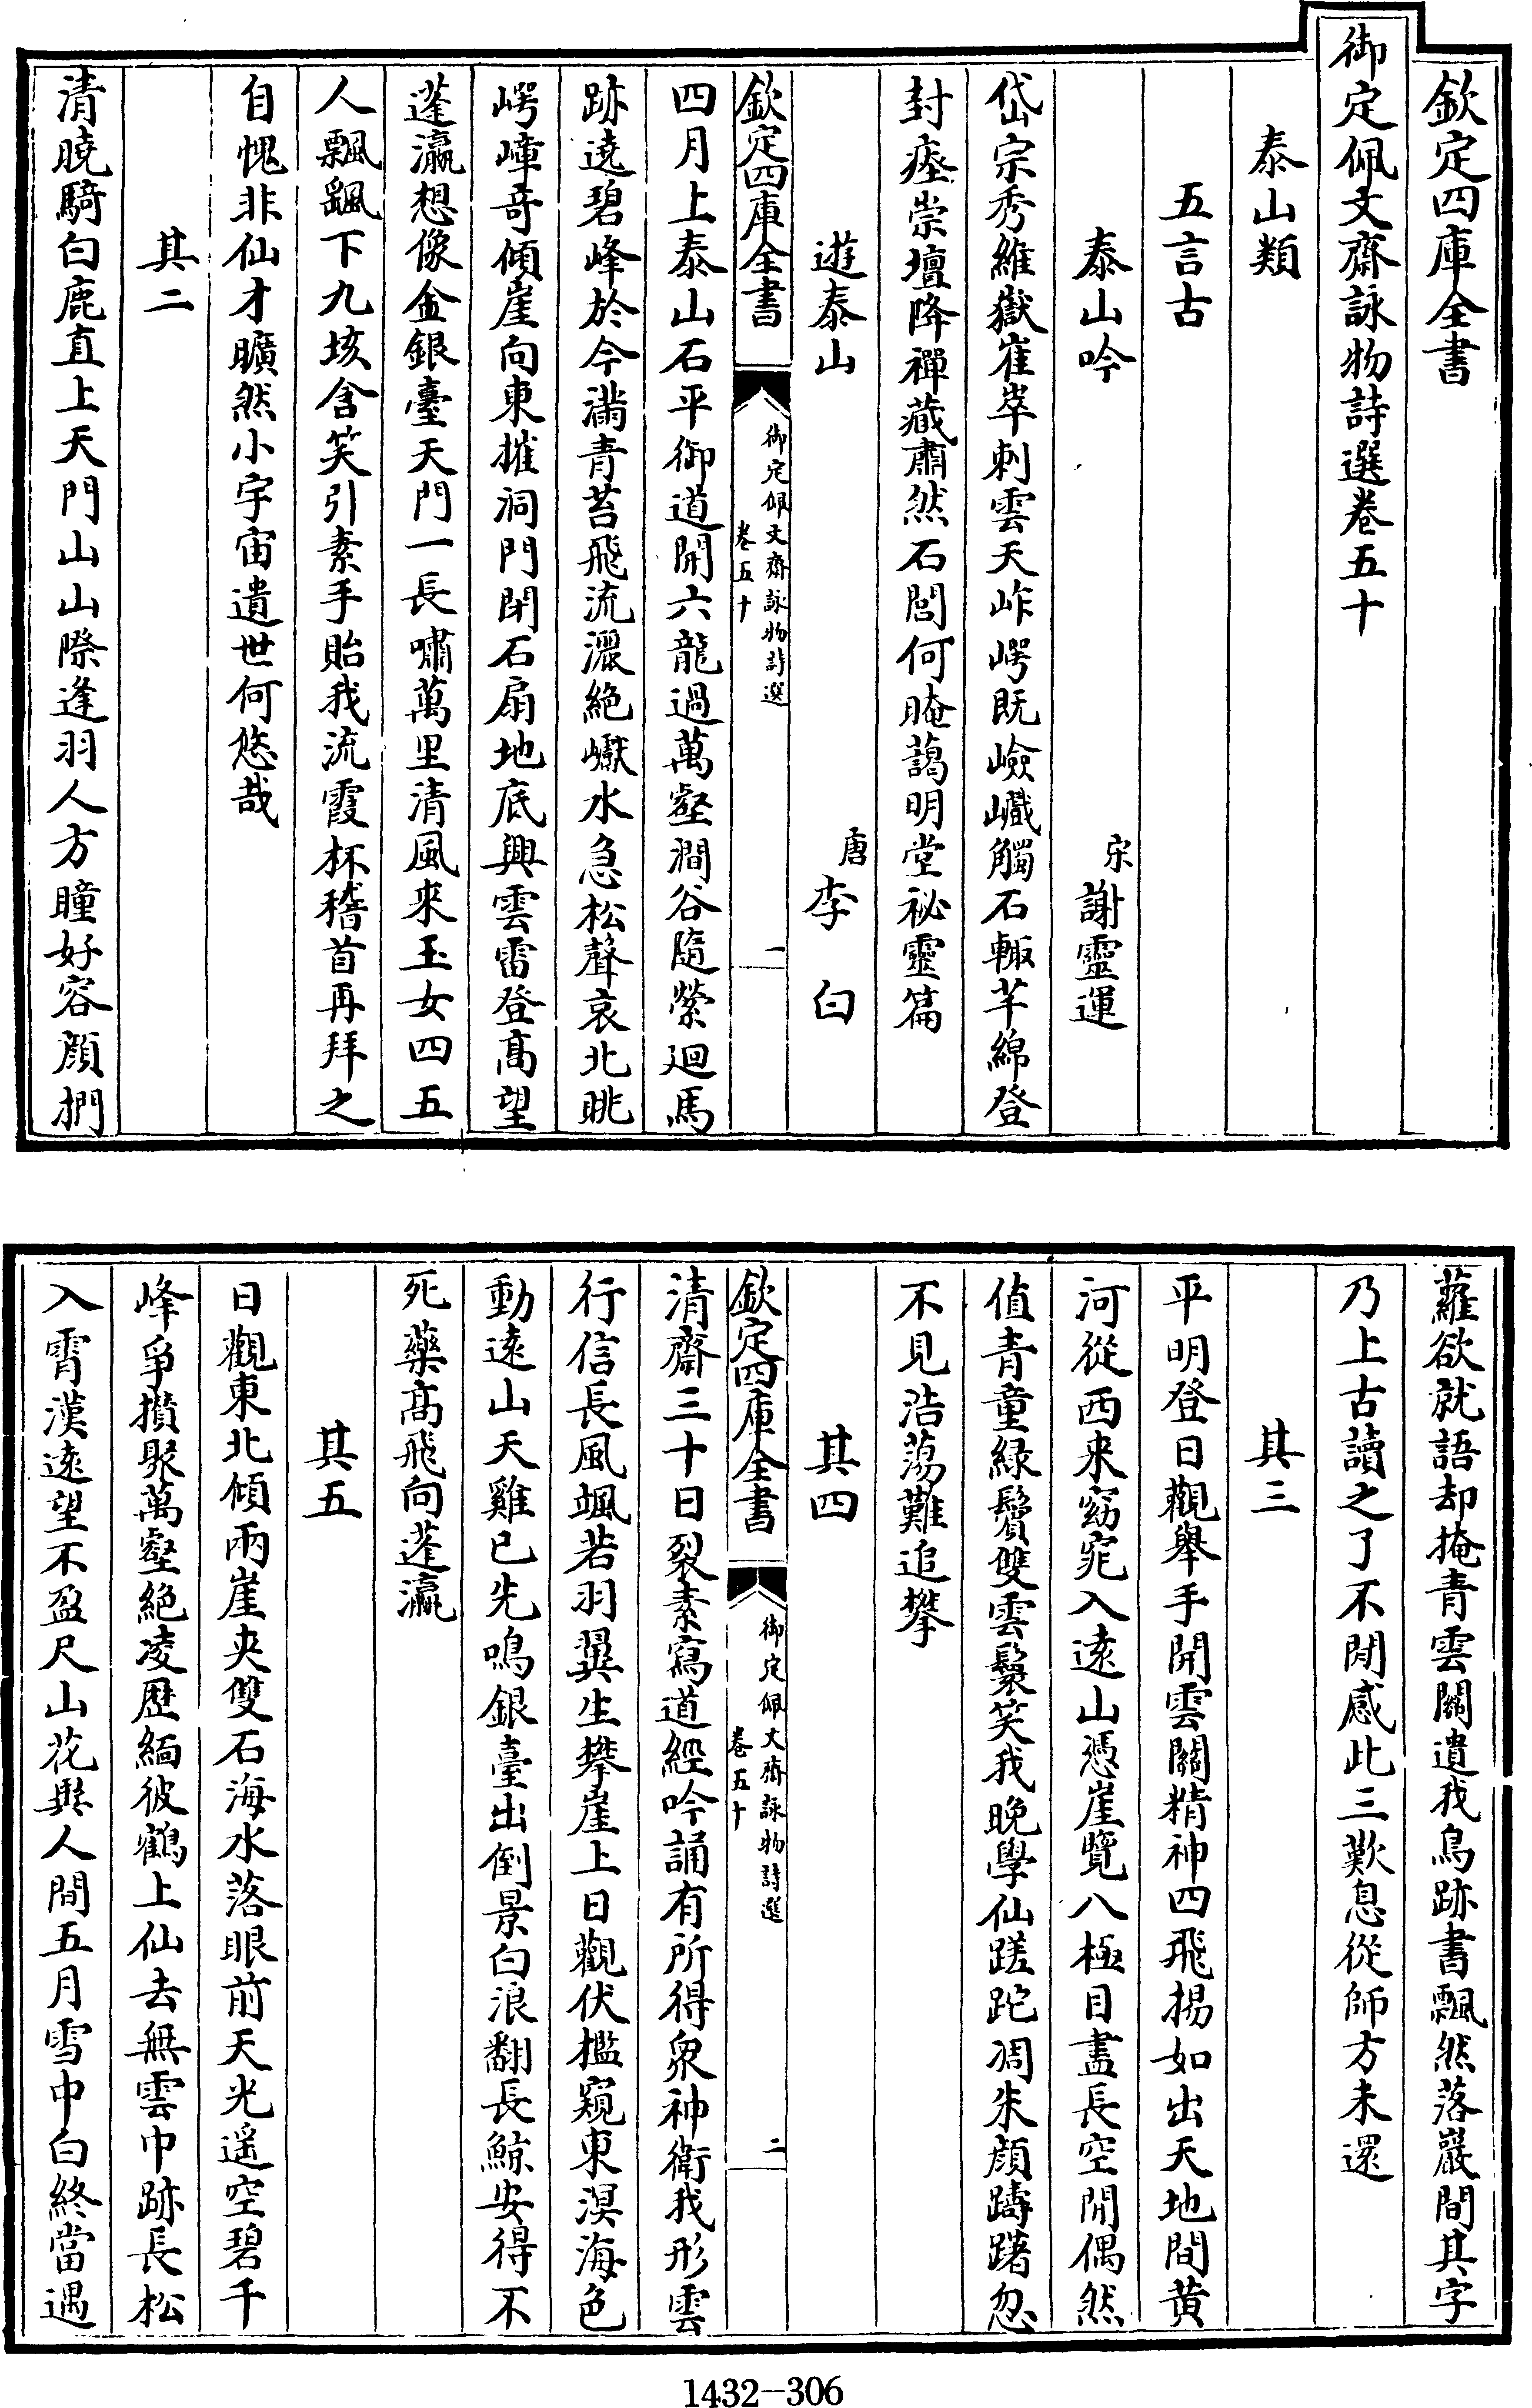 欽定四庫全書
御定佩文齋詠物詩選卷五十
泰山類
五言古
泰山吟　宋謝靈運
岱宗秀維嶽崔崒刺雲天岞崿既嶮巇觸石輙芊綿登
封瘞崇壇降禪藏肅然石閭何晻藹明堂祕靈篇
遊泰山　唐李白
欽定四庫全書
御定佩文齋詠物詩選
卷五十
一
四月上泰山石平御道開六龍過萬壑澗谷隨縈迴馬
跡遶碧峰於今滿青苔飛流灑絶巘水急松聲哀北眺
崿嶂奇傾崖向東摧洞門閉石扇地底興雲雷登髙望
蓬瀛想像金銀臺天門一長嘯萬里清風來玉女四五
人飄颻下九垓含笑引素手貽我流霞杯稽首再拜之
自愧非仙才曠然小宇宙遺世何悠哉
其二
清曉騎白鹿直上天門山山際逢羽人方瞳好容顔捫
蘿欲就語却掩青雲關遺我鳥跡書飄然落巖間其字
乃上古讀之了不閑感此三歎息從師方未還
其三
平明登日觀舉手開雲關精神四飛揚如出天地間黄
河從西来窈窕入遠山憑崖覽八極目盡長空閒偶然
值青童緑鬢雙雲鬟笑我晚學仙蹉跎凋朱顔躊躇忽
不見浩蕩難追攀
其四
欽定四庫全書
御定佩文齋詠物詩選
卷五十
二
清齋三十日裂素寫道經吟誦有所得衆神衛我形雲
行信長風颯若羽翼生攀崖上日觀伏檻窺東溟海色
動遠山天雞已先鳴銀臺出倒景白浪翻長鯨安得不
死藥髙飛向蓬瀛
其五
日觀東北傾兩崖夾雙石海水落眼前天光遥空碧千
峰爭攅聚萬壑絶凌歴緬彼鶴上仙去無雲中跡長松
入霄漢遠望不盈尺山花異人間五月雪中白終當遇
1432-306